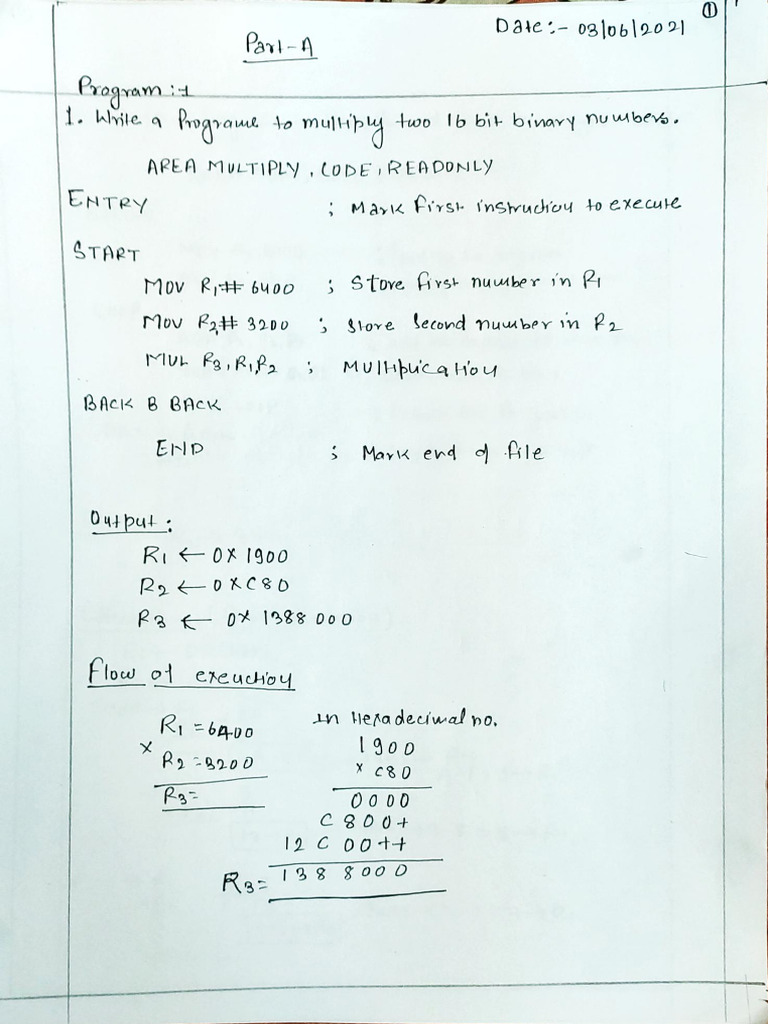 ①
Date:- 03/06/2021
Part-A
Program:-1
1. Write a Programe to multiply two 16 bit binary numbers.
AREA MULTIPLY, CODE, READONLY
ENTRY ; Mark first instruction to execute
START
MOV R1,# 6400 ; Store first number in R1
MOV R2,# 3200 ; Store Second number in R2
MUL R3,R1,R2 ; MUltiplication
BACK B BACK
END ; Mark end of file
Output:
R1 ← 0X1900
R2 ← 0XC80
R3 ← 0X 1388000
Flow of exeuction
R1 =6400
× R2 =3200
R3=
In Hexadecimal no.
1900
× C80
0000
C800+
12C00++
R3= 1388000